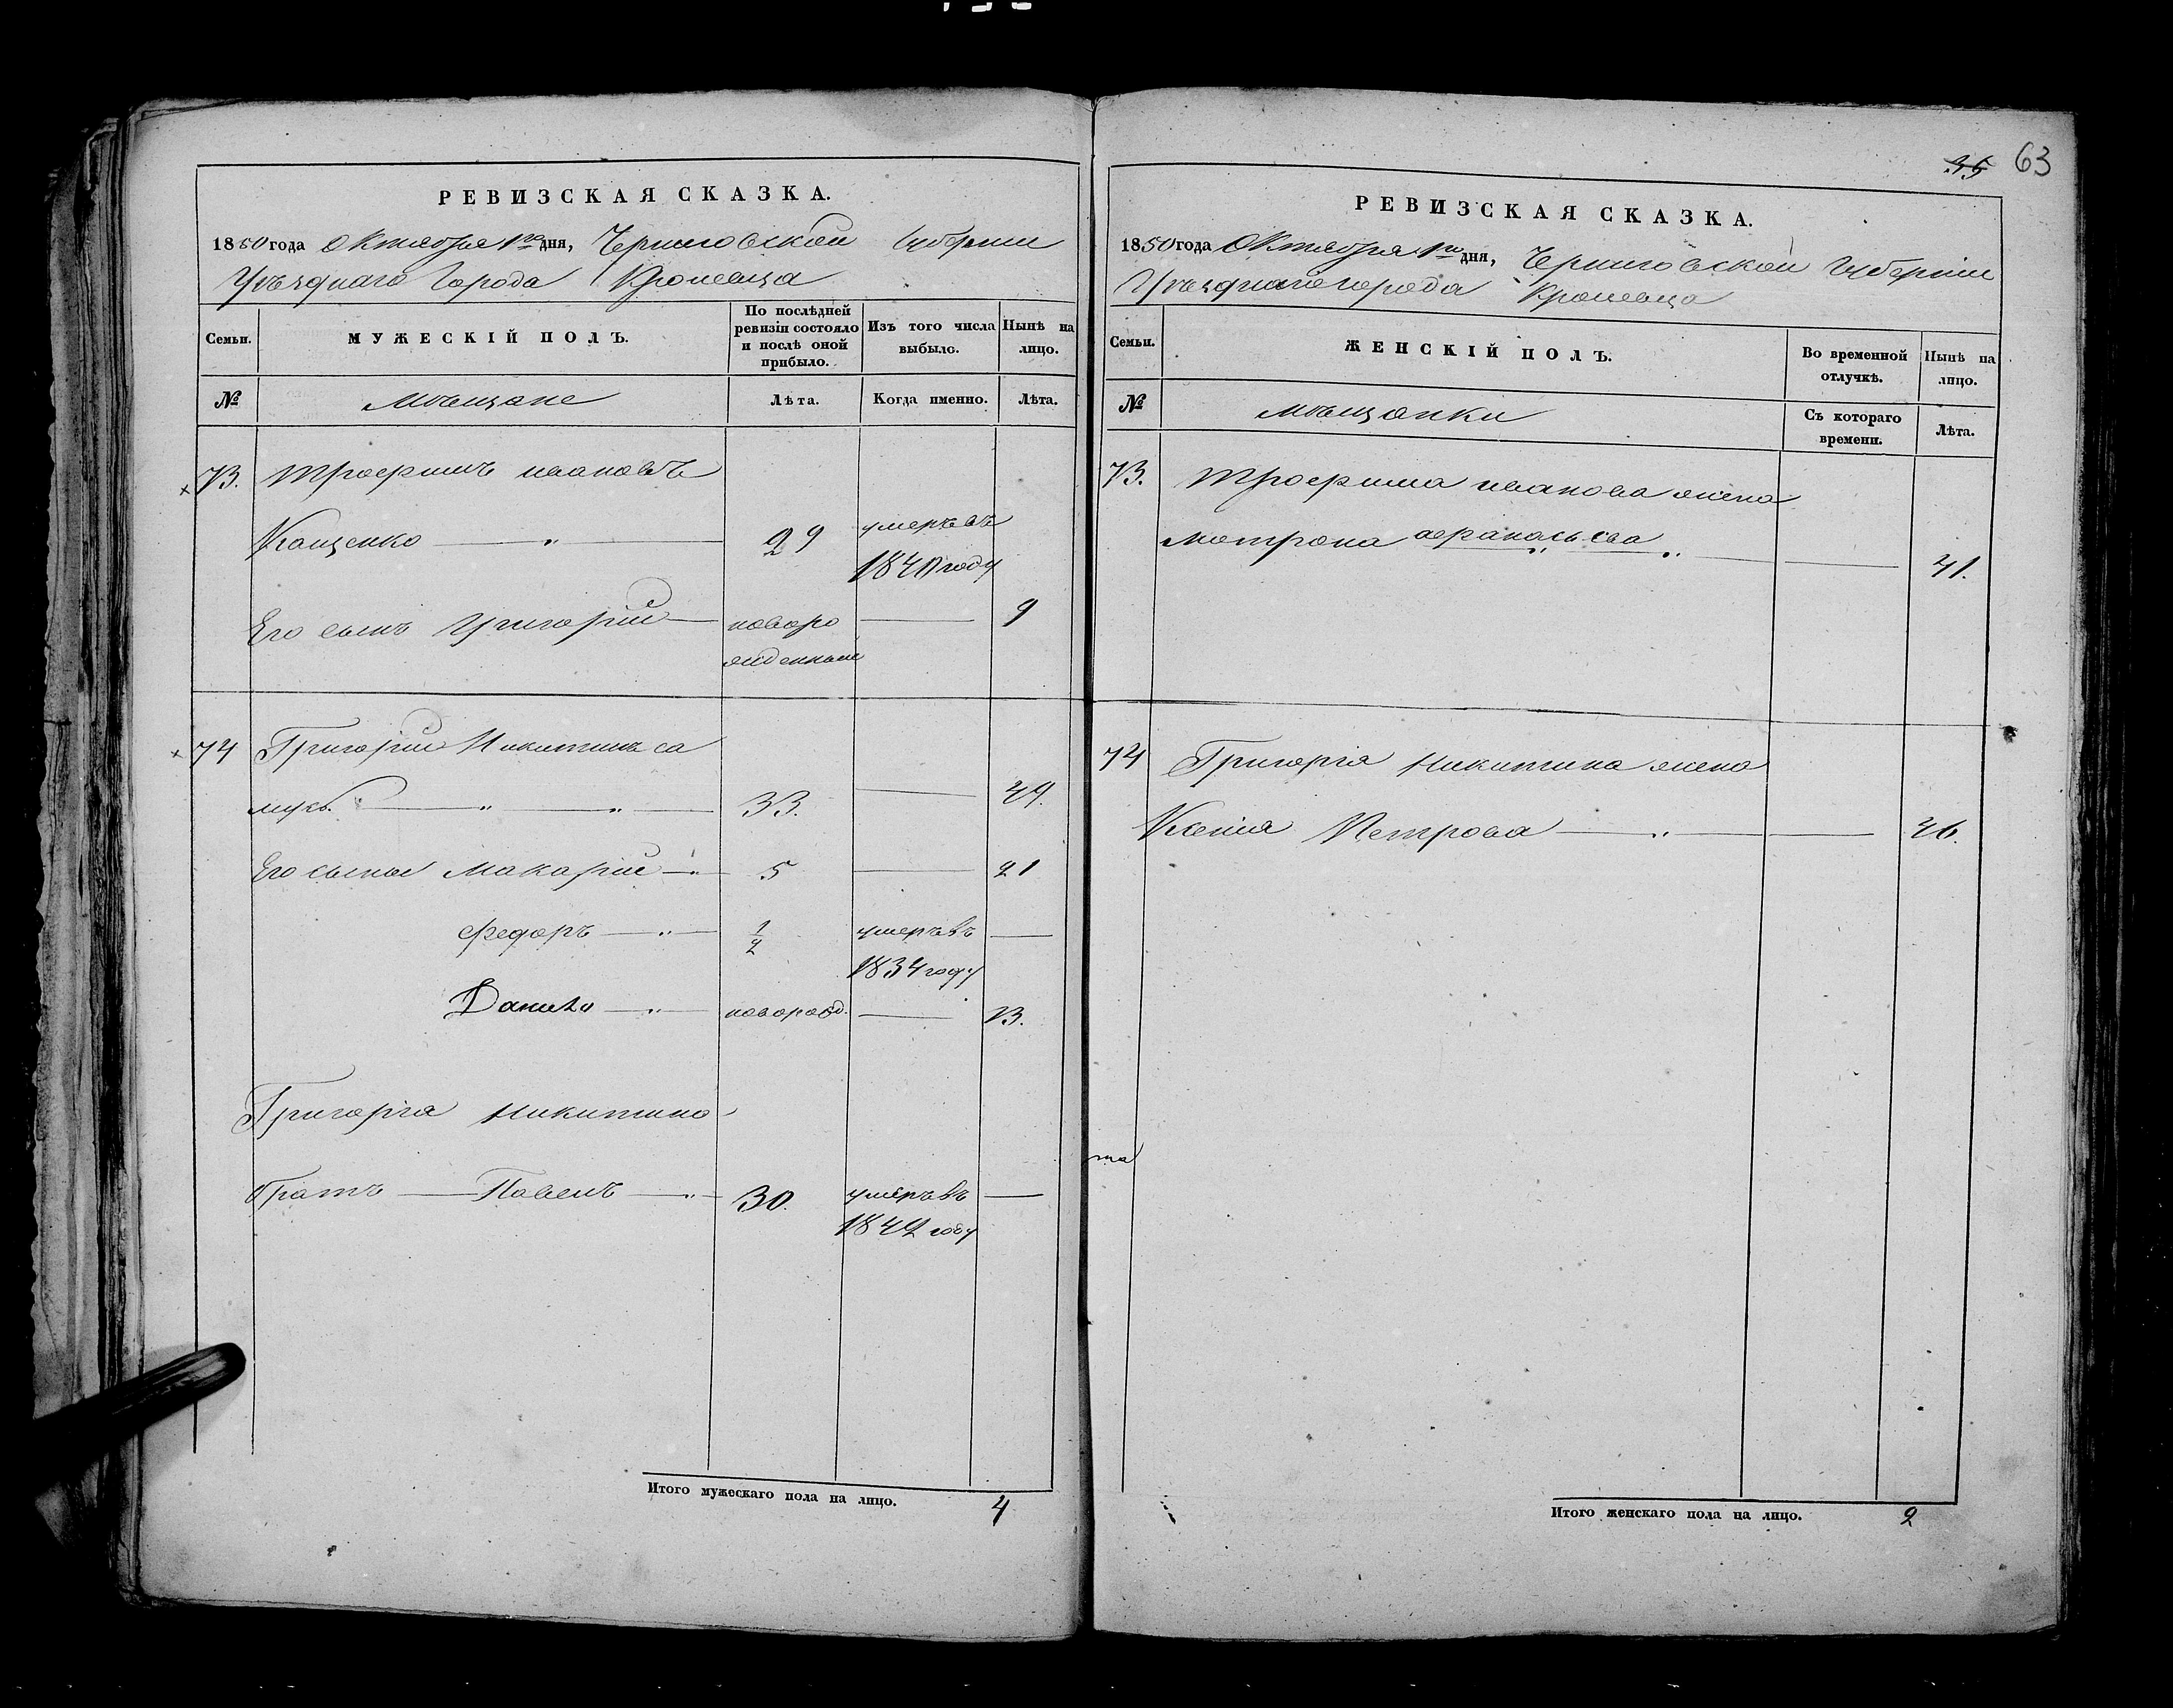 РЕВИЗСКАЯ СКАЗКА.
1850 года Октября 1го дня, Черниговской Губернии
Уѣзднаго Города Кролевца
Семьи.
МУЖЕСКІЙ ПОЛЪ.
По послѣдней ревизіи состояло и послѣ оной прибыло.
Изъ того числа выбыло.
Нынѣ на лицо.
№
Мѣщане
Лѣта.
Когда именно.
Лѣта.
73. Трофимъ Ивановъ
Кощенко — 29 умеръ въ
1840 году
Его сынъ Григорій — новоро — 9
жденный
74 Григорій Никитинъ Са
мусь — 33. — 49.
Его сынъ Макарій — 5 — 21
Федоръ — 1/2 умеръ въ —
1834 году
Данило — новорожд. — 13.
Григорія Никитина
братъ — Павелъ — 30. умеръ въ —
1842 году
Итого мужескаго пола на лицо. 4
35 63
РЕВИЗСКАЯ СКАЗКА.
1850 года Октября 1го дня, Черниговской Губерніи
Уѣзднаго города Кролевца
Семьи.
ЖЕНСКІЙ ПОЛЪ.
Во временной отлучкѣ.
Нынѣ на лицо.
№
Мѣщанки
Съ котораго времени.
Лѣта.
73. Трофима Иванова жена
Мотрона Афанасьева — 41.
74 Григорія Никитина жена
Ксенія Петрова — 46.
та
Итого женскаго пола на лицо. 2